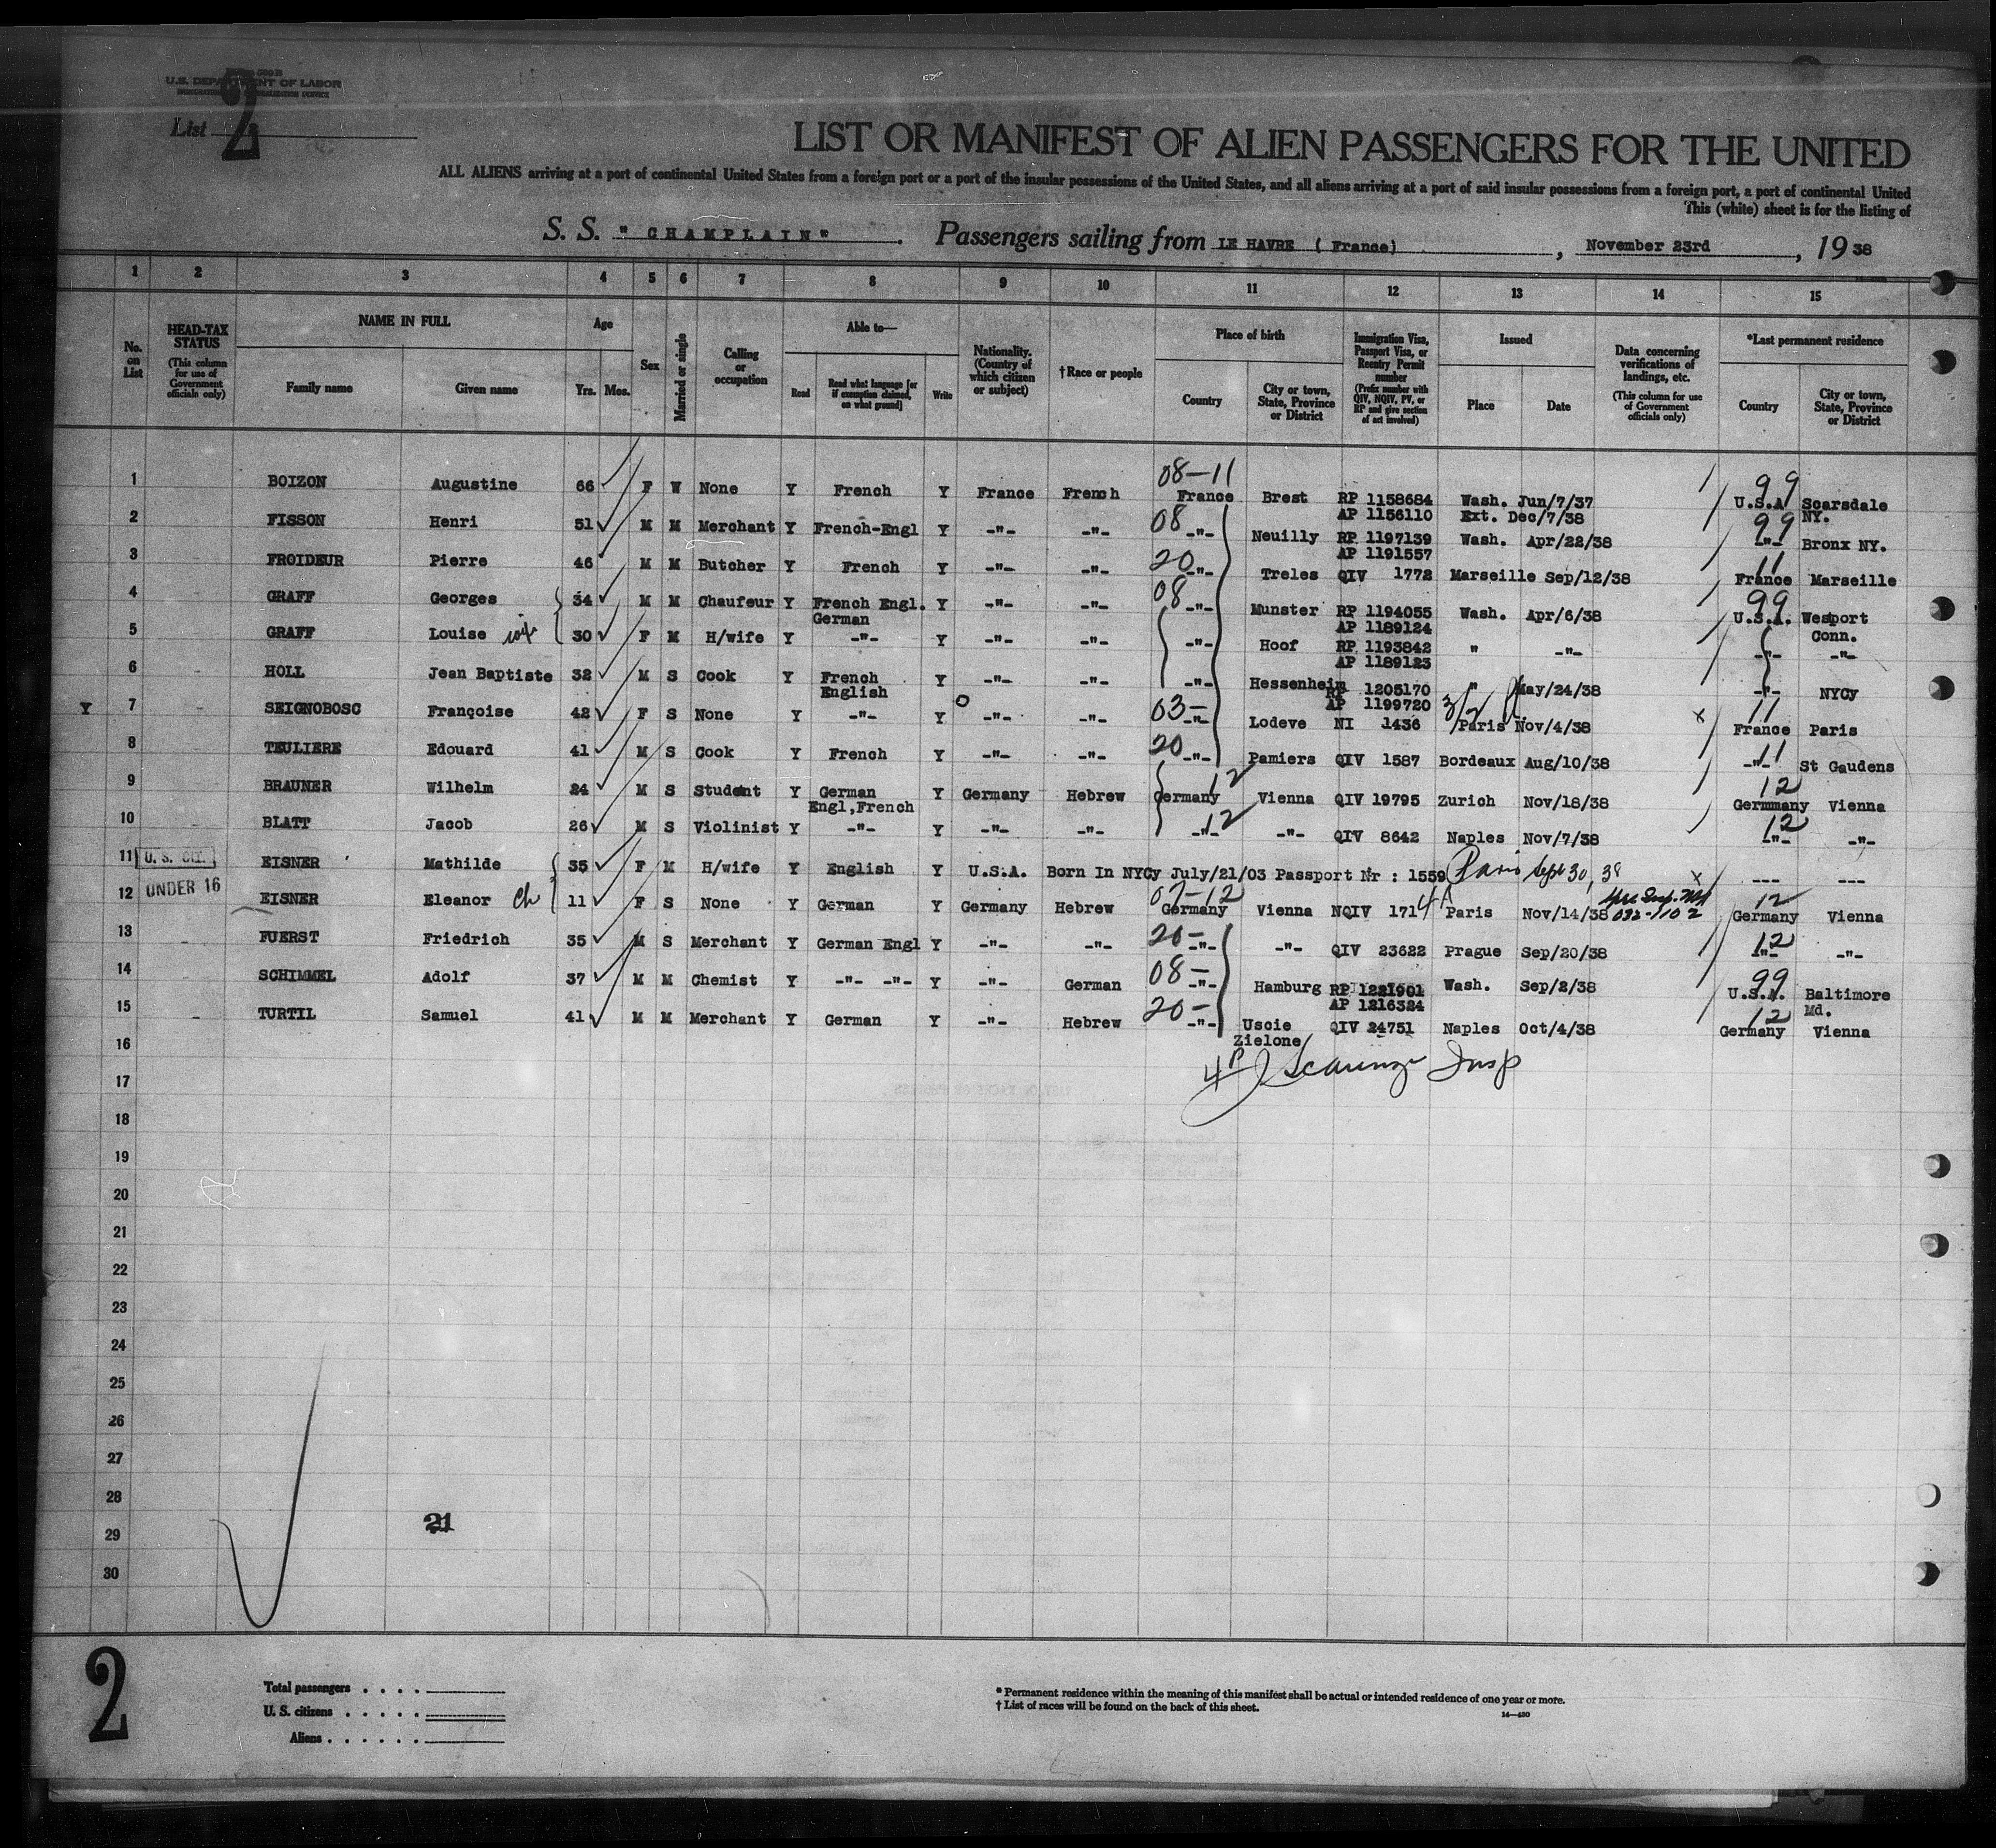 U.S. DEPARTMENT OF LABOR
List 2
LIST OR MANIFEST OF ALIEN PASSENGERS FOR THE UNITED
ALL ALIENS arriving at a port of continental United States from a foreign port or a port of the insular possessions of the United States, and all aliens arriving at a port of said insular possessions from a foreign port, a port of continental United
This (white) sheet is for the listing of
S. S. " CHAMPLAIN" . Passengers sailing from LE HAVRE ( France) , November 23rd , 19 38
1 2 3 4 5 6 7 8 9 10 11 12 13 14 15
No. on List
HEAD-TAX STATUS (This column for use of Government officials only)
NAME IN FULL Family name Given name
Age Yrs. Mos.
Sex
Married or single
Calling or occupation
Able to— Read Read what language [or if exemption claimed, on what ground] Write
Nationality. (Country of which citizen or subject)
†Race or people
Place of birth Country City or town, State, Province or District
Immigration Visa, Passport Visa, or Reentry Permit number (Prefix number with QIV, NQIV, PV, or RP and give section of act involved)
Issued Place Date
Data concerning verifications of landings, etc. (This column for use of Government officials only)
*Last permanent residence Country City or town, State, Province or District
08-11 99
1 BOIZON Augustine 66 F W None Y French Y France French France Brest RP 1158684 Wash. Jun/7/37 U.S.A Scarsdale
AP 1156110 Ext. Dec/7/38 NY.
2 FISSON Henri 51 M M Merchant Y French-Engl Y -"- -"- 08 -"- Neuilly RP 1197139 Wash. Apr/22/38 99 -"- Bronx NY.
AP 1191557
3 FROIDEUR Pierre 46 M M Butcher Y French Y -"- -"- 20 -"- Treles QIV 1772 Marseille Sep/12/38 11 France Marseille
4 GRAFF Georges 34 M M Chaufeur Y French Engl. Y -"- -"- 08 -"- Munster RP 1194055 Wash. Apr/6/38 99 U.S.A. Wesport
German AP 1189124 Conn.
5 GRAFF Louise wife 30 F M H/wife Y -"- Y -"- -"- -"- Hoof RP 1193842 " -"- -"- -"-
AP 1189123
6 HOLL Jean Baptiste 32 M S Cook Y French Y -"- -"- -"- Hessenheim RP 1205170 " May/24/38 -"- NYCy
English AP 1199720
Y 7 SEIGNOBOSC Françoise 42 F S None Y -"- Y -"- -"- 03- -"- Lodeve NI 1436 3/2 Paris Nov/4/38 x 11 France Paris
8 TEULIERE Edouard 41 M S Cook Y French Y -"- -"- 20 -"- Pamiers QIV 1587 Bordeaux Aug/10/38 11 -"- St Gaudens
9 BRAUNER Wilhelm 24 M S Student Y German Y Germany Hebrew Germany 12 Vienna QIV 19795 Zurich Nov/18/38 12 Germmany Vienna
Engl,French
10 BLATT Jacob 26 M S Violinist Y -"- Y -"- -"- 12 -"- -"- QIV 8642 Naples Nov/7/38 12 -"- -"-
11 U. S. CIT. EISNER Mathilde 35 F M H/wife Y English Y U.S.A. Born In NYCy July/21/03 Passport Nr : 1559 Paris Sept 30, 38 --- ---
12 UNDER 16 EISNER Eleanor Ch 11 F S None Y German Y Germany Hebrew 07-12 Germany Vienna NQIV 1714 4A Paris Nov/14/38 032-1102 12 Germany Vienna
13 FUERST Friedrich 35 M S Merchant Y German Engl Y -"- -"- 20- -"- -"- QIV 23622 Prague Sep/20/38 12 -"- -"-
14 SCHIMMEL Adolf 37 M M Chemist Y -"- -"- Y -"- German 08- -"- Hamburg RP 1221901 Wash. Sep/2/38 99 U.S.A. Baltimore
AP 1216324 Md.
15 TURTIL Samuel 41 M M Merchant Y German Y -"- Hebrew 20- -"- Uscie QIV 24751 Naples Oct/4/38 12 Germany Vienna
Zielone
16
17
18
19
20
21
22
23
24
25
26
27
28
21
29
30
2
Total passengers . . . .
U. S. citizens . . . . .
Aliens . . . . . .
* Permanent residence within the meaning of this manifest shall be actual or intended residence of one year or more.
† List of races will be found on the back of this sheet.
14—430